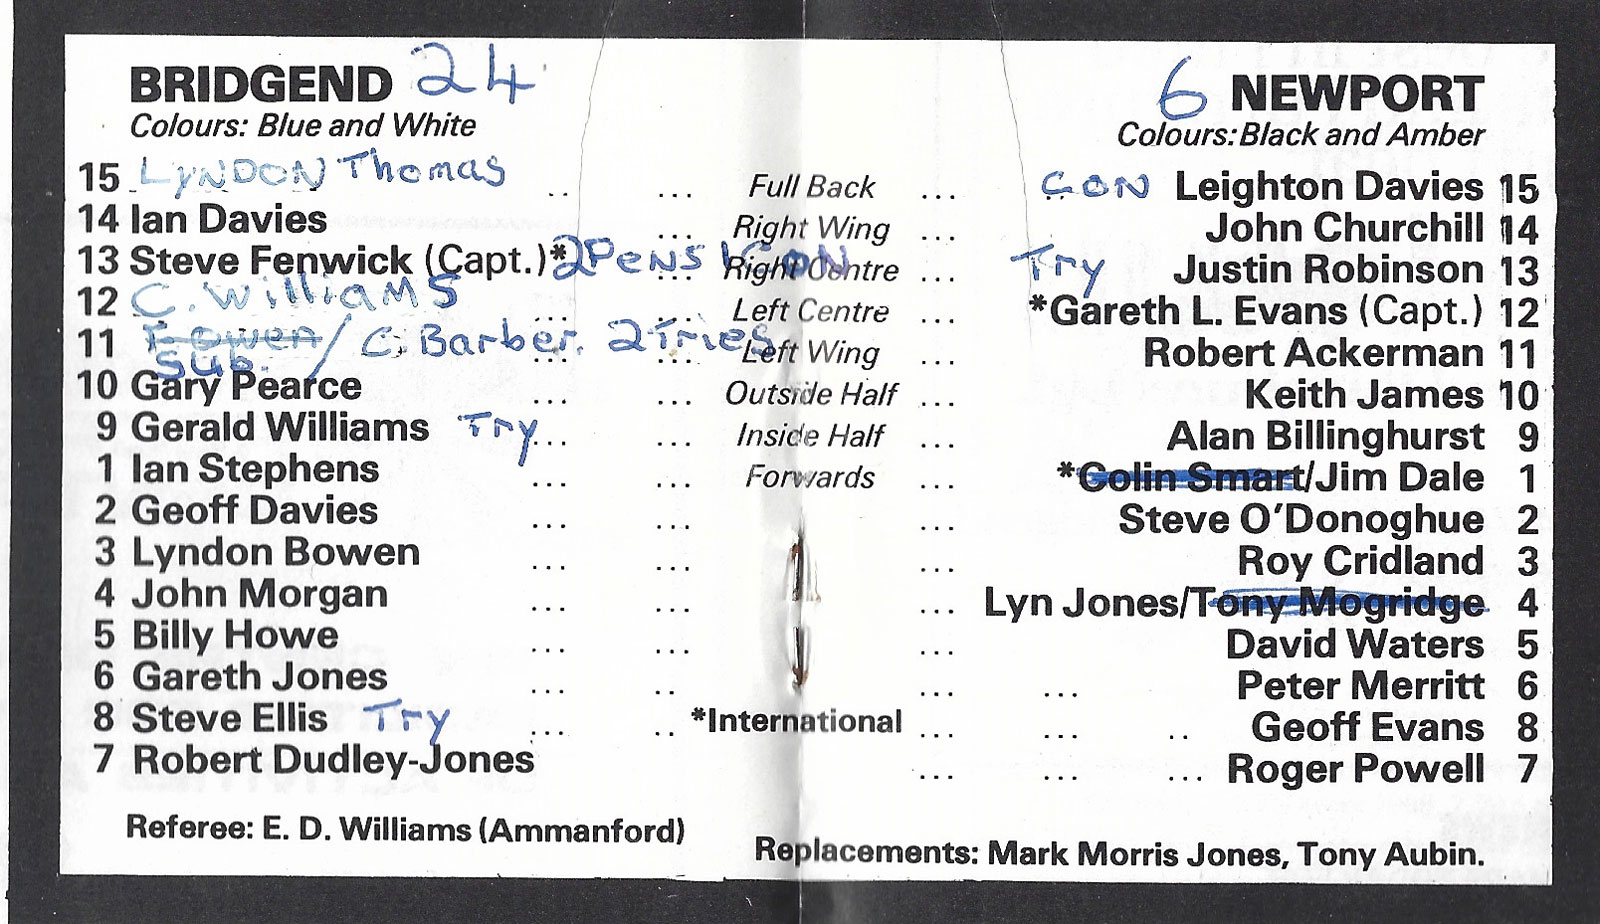 BRIDGEND 24
6 NEWPORT
Colours: Blue and White
Colours: Black and Amber
15 LYNDON Thomas .. ... Full Back ... CON Leighton Davies 15
14 Ian Davies ... Right Wing ... John Churchill 14
13 Steve Fenwick (Capt.)* 2 PENS 1 CON ... Right Centre ... Try Justin Robinson 13
12 C. Williams ... ... Left Centre *Gareth L. Evans (Capt.) 12
11 F. Owen / C. Barber. 2 Tries ... ... Left Wing ... Robert Ackerman 11
Sub.
10 Gary Pearce ... ... Outside Half ... Keith James 10
9 Gerald Williams Try ... ... Inside Half ... Alan Billinghurst 9
1 Ian Stephens ... ... Forwards ... *Colin Smart/Jim Dale 1
2 Geoff Davies ... ... ... Steve O'Donoghue 2
3 Lyndon Bowen ... ... ... Roy Cridland 3
4 John Morgan ... ... ... Lyn Jones/Tony Mogridge 4
5 Billy Howe ... ... ... David Waters 5
6 Gareth Jones ... .. ... ... Peter Merritt 6
8 Steve Ellis Try ... .. *International ... ... .. Geoff Evans 8
7 Robert Dudley-Jones ... ... ... Roger Powell 7
Referee: E. D. Williams (Ammanford)
Replacements: Mark Morris Jones, Tony Aubin.